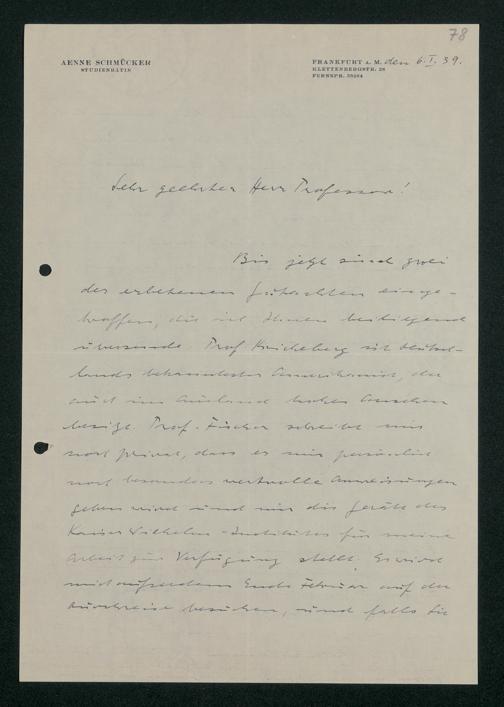 78
AENNE SCHMÜCKER
STUDIENRÄTIN
FRANKFURT A. M. den 6. I. 39.
KLETTENBERGSTR. 28
FERNSPR. 55264
Sehr geehrter Herr Professor!
Bis jetzt sind zwei
der erbetenen Gutachten einge-
troffen, die ich Ihnen beiliegend
übersende. Prof. Krickeberg ist Deutsch-
lands bekanntester Amerikanist, der
auch im Ausland hohes Ansehen
besitzt. Prof. Fischer schreibt mir
noch privat, dass er mir persönlich
noch besonders wertvolle Anweisungen
geben wird und mir die Geräte des
Kaiser Wilhelm-Institutes für meine
Arbeit zur Verfügung stellt. Er wird
mich außerdem Ende Februar auf der
Durchreise besuchen, und falls Sie